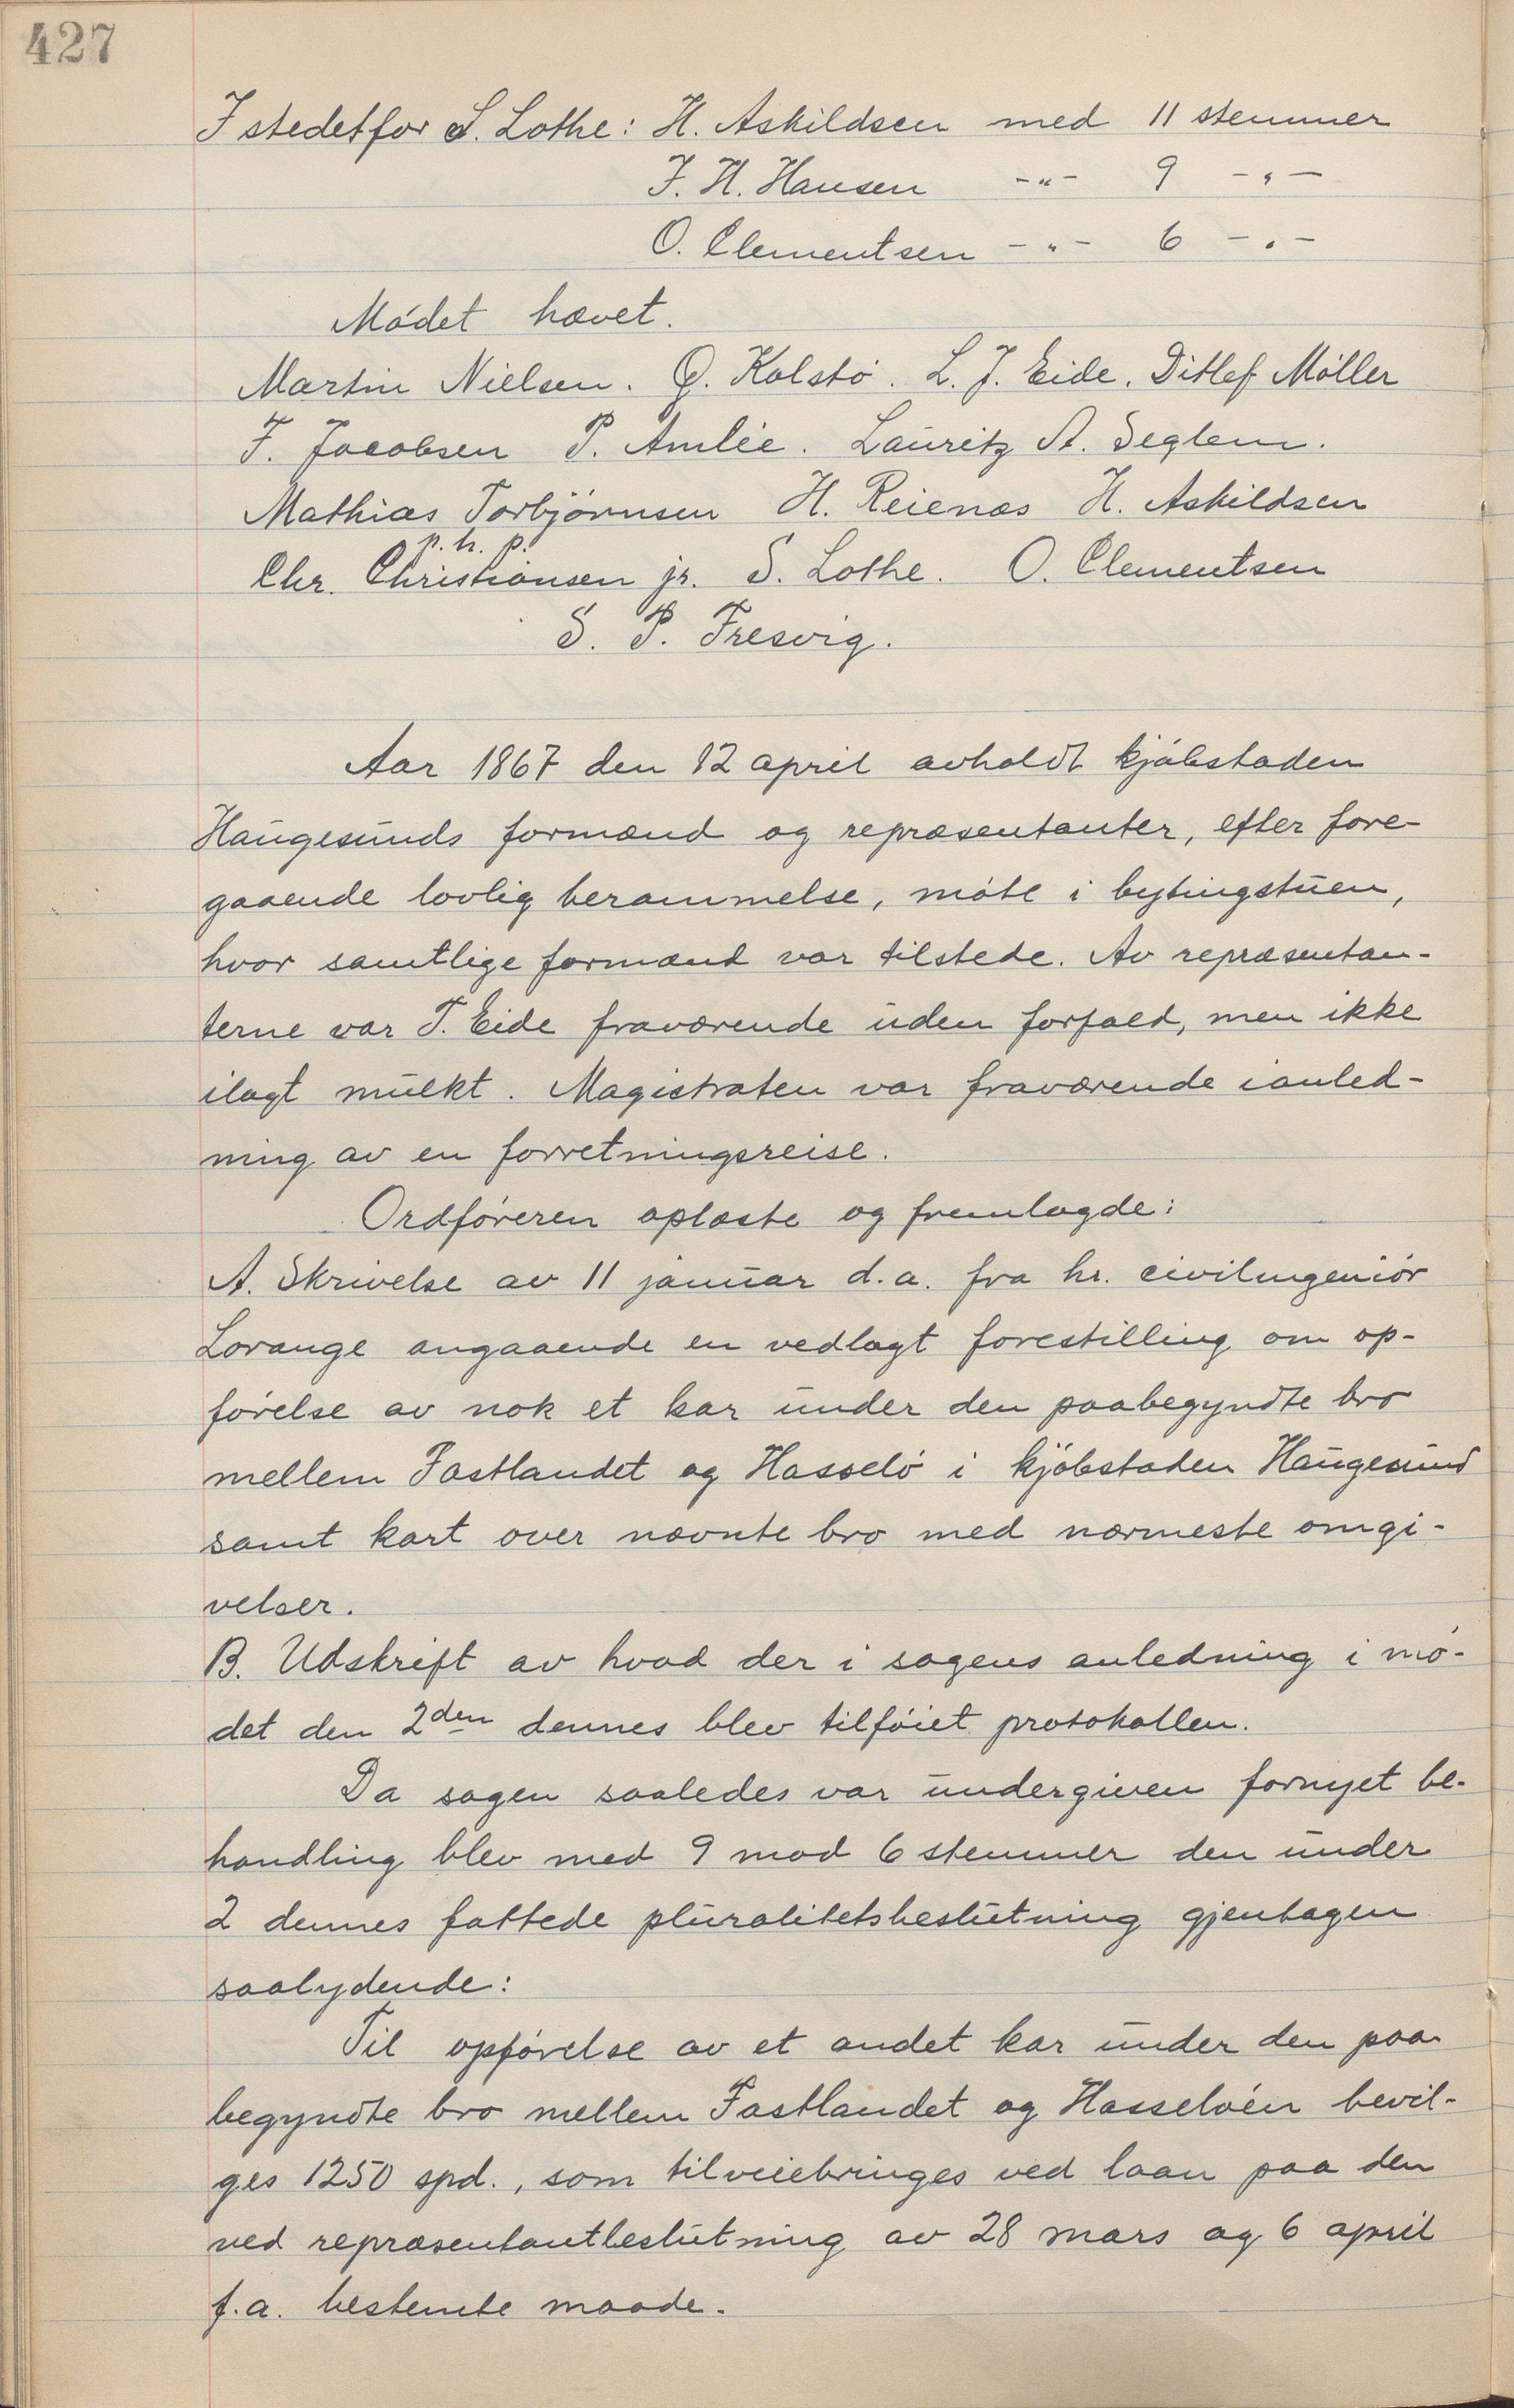 427
I stedetfor S. Lothe: H. Askildsen med 11 stemmer
J. H. Hansen -"- 9 -"-
O. Clementsen -"- 6 -"-
Mødet hævet.
Martin Nielsen. G. Kolstø. L. J. Eide. Ditlef Møller
F. Jacobsen P. Amlie. Lauritz A. Seglem.
Mathias Torbjørnsen H. Reienæs H. Askildsen
p. h. p.
Chr. Christiansen jr. S. Lothe. O. Clementsen
S. P. Fresvig.
Aar 1867 den 12 april avholdt kjøbstaden
Haugesunds formænd og repræsentanter, efter fore-
gaaende lovlig berammelse, møte i bytingstuen,
hvor samtlige formænd var tilstede. Av repræsentan-
terne var T. Eide fraværende uden forfald, men ikke
ilagt mulkt. Magistraten var fraværende ianled-
ning av en forretningsreise.
Ordføreren oplæste og fremlagde:
A. Skrivelse av 11 januar d.a. fra hr. civilingeniør
Lorange angaaende en vedlagt forestilling om op-
førelse av nok et kar under den paabegyndte bro
mellem Fastlandet og Hasselø i kjøbstaden Haugesund
samt kart over nævnte bro med nærmeste omgi-
velser.
B. Udskrift av hvad der i sagens anledning i mø-
det den 2den dennes blev tilføiet protokollen.
Da sagen saaledes var undergiven fornyet be-
handling blev med 9 mod 6 stemmer den under
2 dennes fattede pluralitetsbeslutning gjentagen
saalydende:
Til opførelse av et andet kar under den paa-
begyndte bro mellem Fastlandet og Hasseløen bevil-
ges 1250 spd., som tilveiebringes ved laan paa den
ved repræsentantbeslutning av 28 mars og 6 april
f.a. bestemte maade.